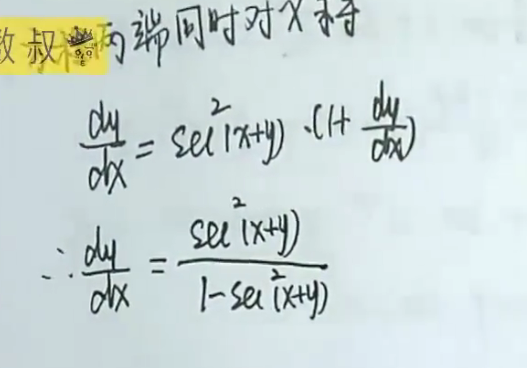 教叔
两端同时对x求导
dy/dx = sec²(x+y)·(1+ dy/dx)
∴ dy/dx = sec²(x+y) / 1-sec²(x+y)